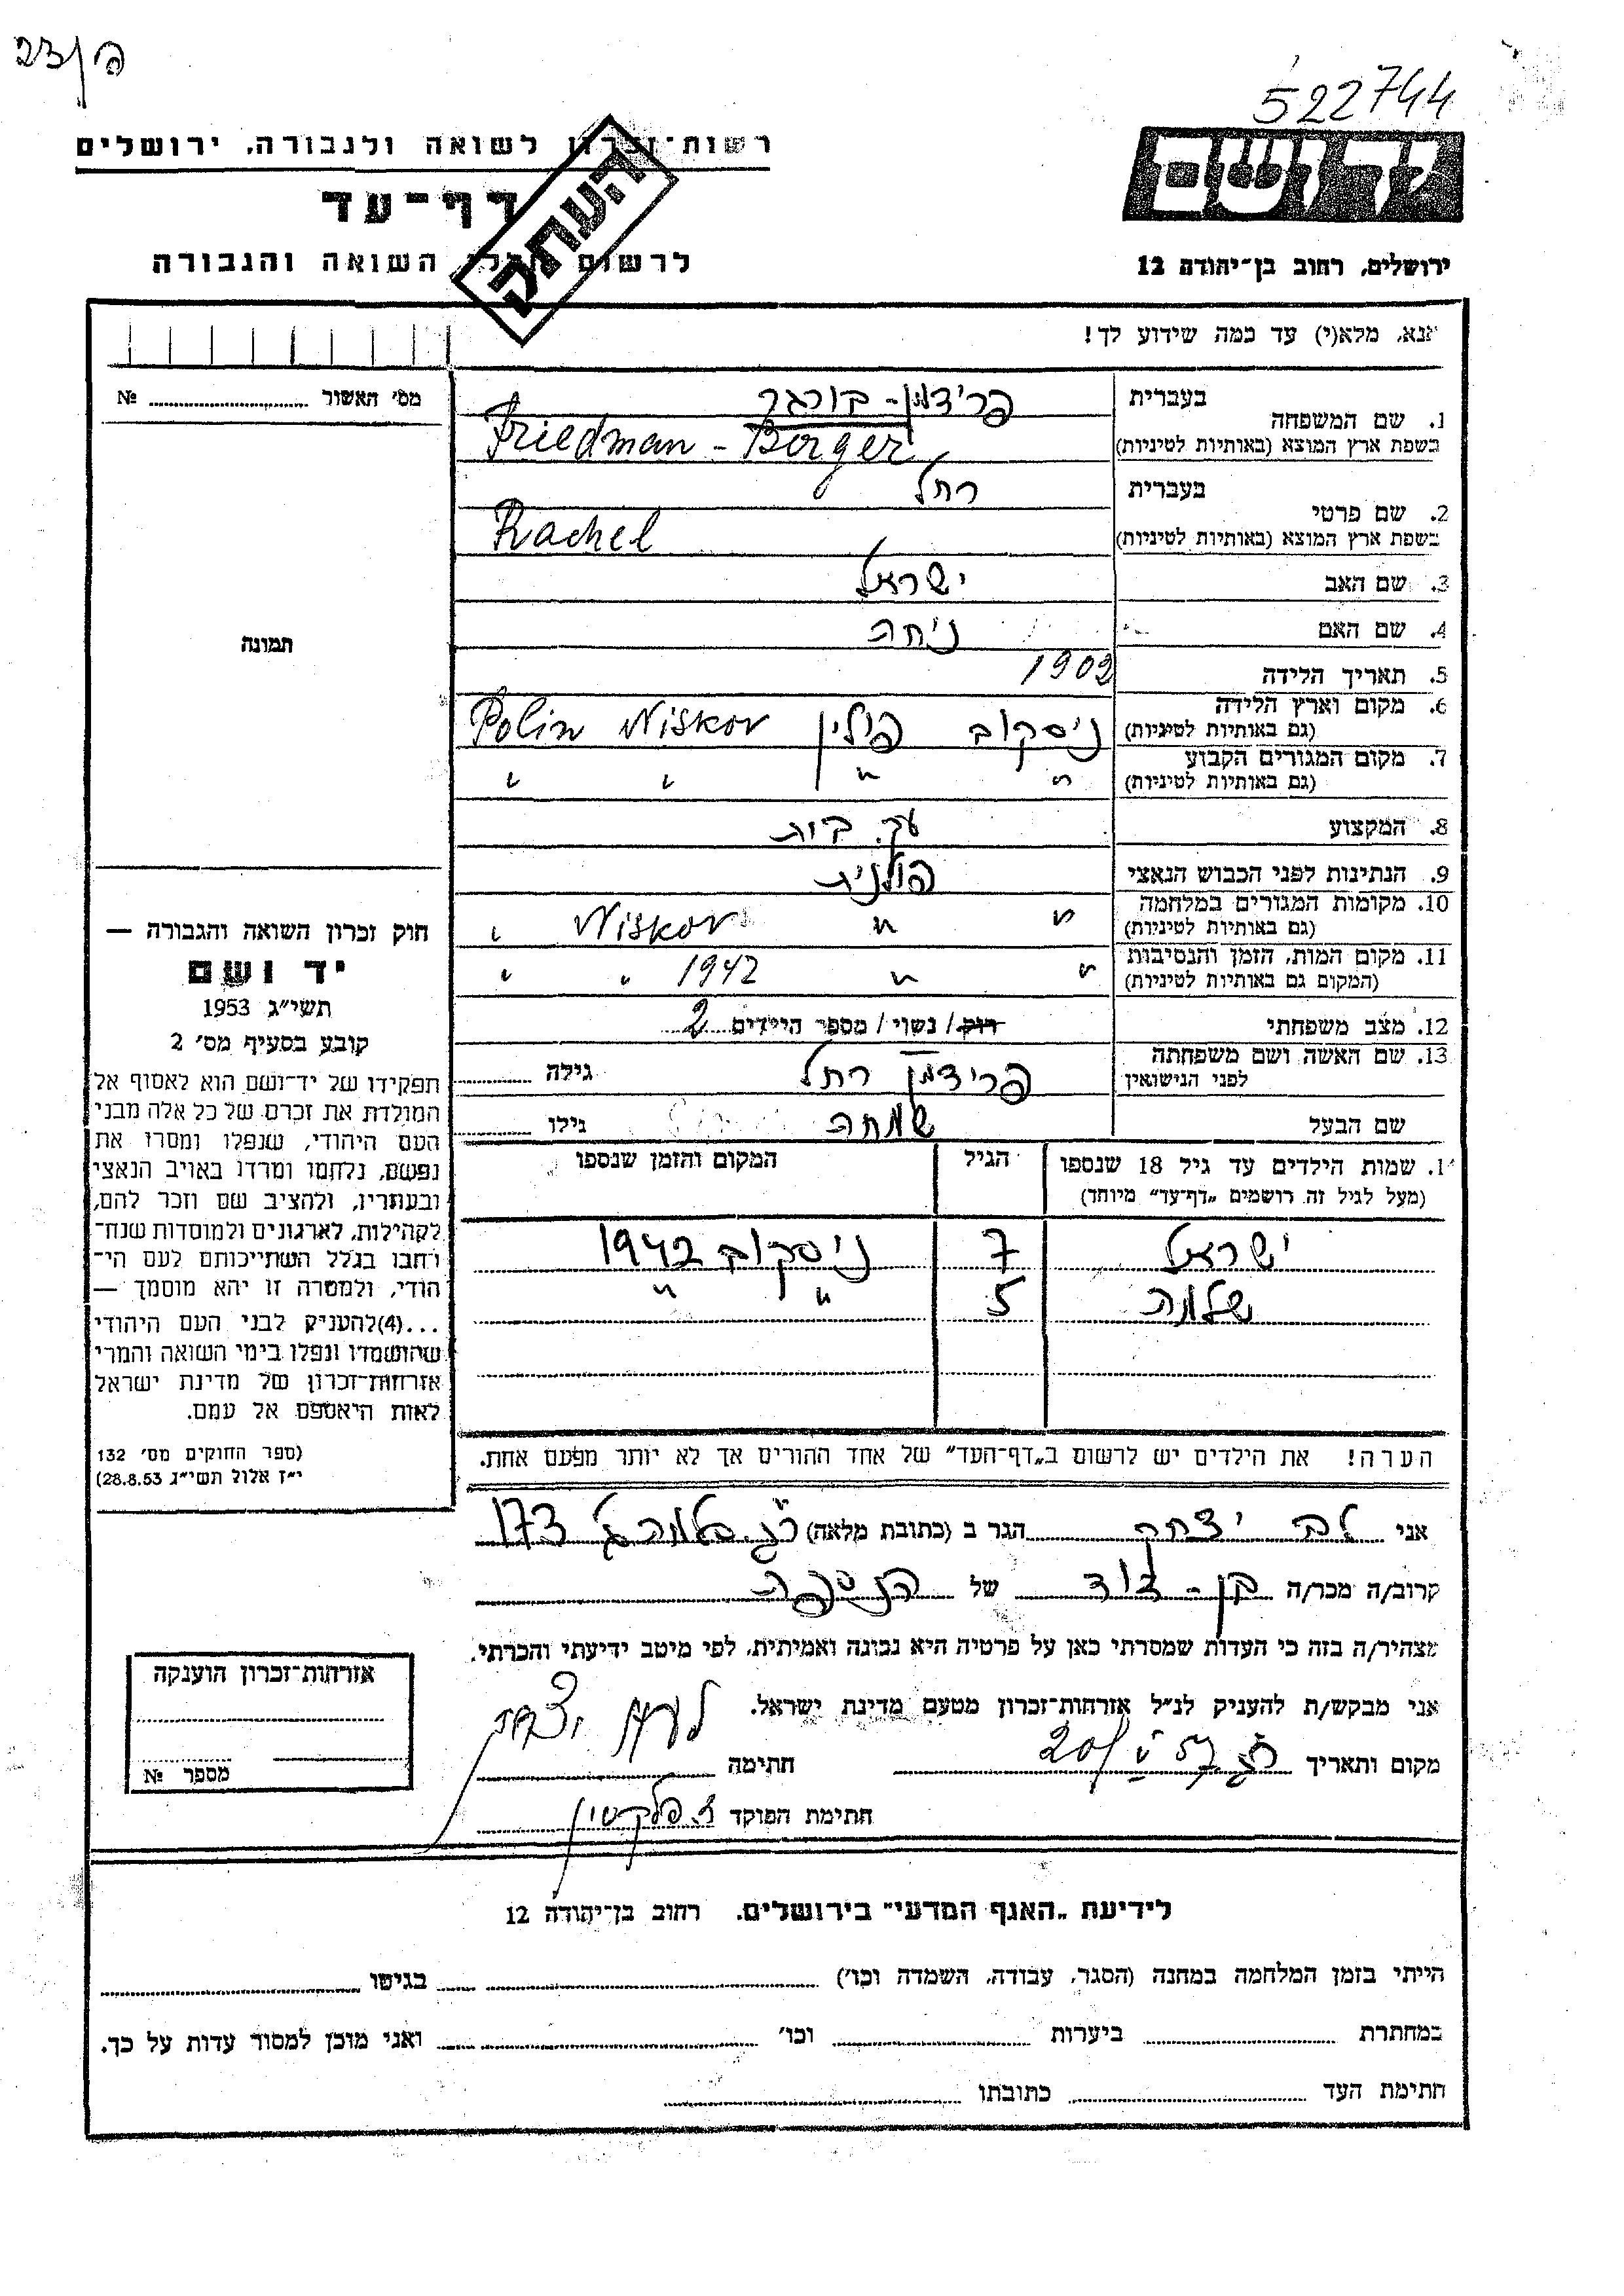 פ/23
522744
רשות־זכרון לשואה ולגבורה, ירושלים
יד ושם
דף־עד
העתק
לרשום חללי השואה והגבורה
ירושלים, רחוב בן־יהודה 12
אנא, מלא(י) עד כמה שידוע לך!
מס' האשור № 
1. שם המשפחה
בעברית פרידמן - בורגר
בשפת ארץ המוצא (באותיות לטיניות) Friedman - Borger
2. שם פרטי
בעברית רחל
בשפת ארץ המוצא (באותיות לטיניות) Rachel
3. שם האב ישראל
4. שם האם
5. תאריך הלידה 1902
6. מקום וארץ הלידה
(גם באותיות לטיניות) ניסקוב פולין Polin Niskov
7. מקום המגורים הקבוע
(גם באותיות לטיניות) " " " "
8. המקצוע עק. בית
9. הנתינות לפני הכבוש הנאצי פולנית
10. מקומות המגורים במלחמה
(גם באותיות לטיניות) " " Niskov "
11. מקום המות, הזמן והנסיבות
(המקום גם באותיות לטיניות) " " 1942 " "
12. מצב משפחתי רווק / נשוי / מספר הילדים 2
13. שם האשה ושם משפחתה
לפני הנישואין פרידמן רחל גילה
שם הבעל שמחה גילו
תמונה
חוק זכרון השואה והגבורה —
יד ושם
תשי"ג 1953
קובע בסעיף מס' 2
תפקידו של יד־ושם הוא לאסוף אל
המולדת את זכרם של כל אלה מבני
העם היהודי, שנפלו ומסרו את
נפשם, נלחמו ומרדו באויב הנאצי
ובעוזריו, ולהציב שם וזכר להם,
לקהילות, לארגונים ולמוסדות שנח־
רבו בגלל השתייכותם לעם הי־
הודי, ולמטרה זו יהא מוסמך —
...(4)להעניק לבני העם היהודי
שהושמדו ונפלו בימי השואה והמרי
אזרחות־זכרון של מדינת ישראל
לאות היאספם אל עמם.
(ספר החוקים מס' 132
י"ז אלול תשי"ג 28.8.53)
1. שמות הילדים עד גיל 18 שנספו
(מעל לגיל זה רושמים „דף־עד" מיוחד)
הגיל
המקום והזמן שנספו
ישראל 7 ניסקוב 1942
שלמה 5 " "
הערה! את הילדים יש לרשום ב„דף־העד" של אחד ההורים אך לא יותר מפעם אחת.
אני לב יצחק הגר ב (כתובת מלאה) 173
קרוב/ה מכר/ה בן - דוד של הניספה
מצהיר/ה בזה כי העדות שמסרתי כאן על פרטיה היא נכונה ואמיתית, לפי מיטב ידיעתי והכרתי.
אני מבקש/ת להעניק לנ"ל אזרחות־זכרון מטעם מדינת ישראל.
מקום ותאריך 20/ חתימה
חתימת הפוקד
אזרחות־זכרון הוענקה
מספר №
לידיעת „האגף המדעי" בירושלים. רחוב בן־יהודה 12
הייתי בזמן המלחמה במחנה (הסגר, עבודה, השמדה וכו') בגיטו
במחתרת ביערות וכו' ואני מוכן למסור עדות על כך.
חתימת העד כתובתו